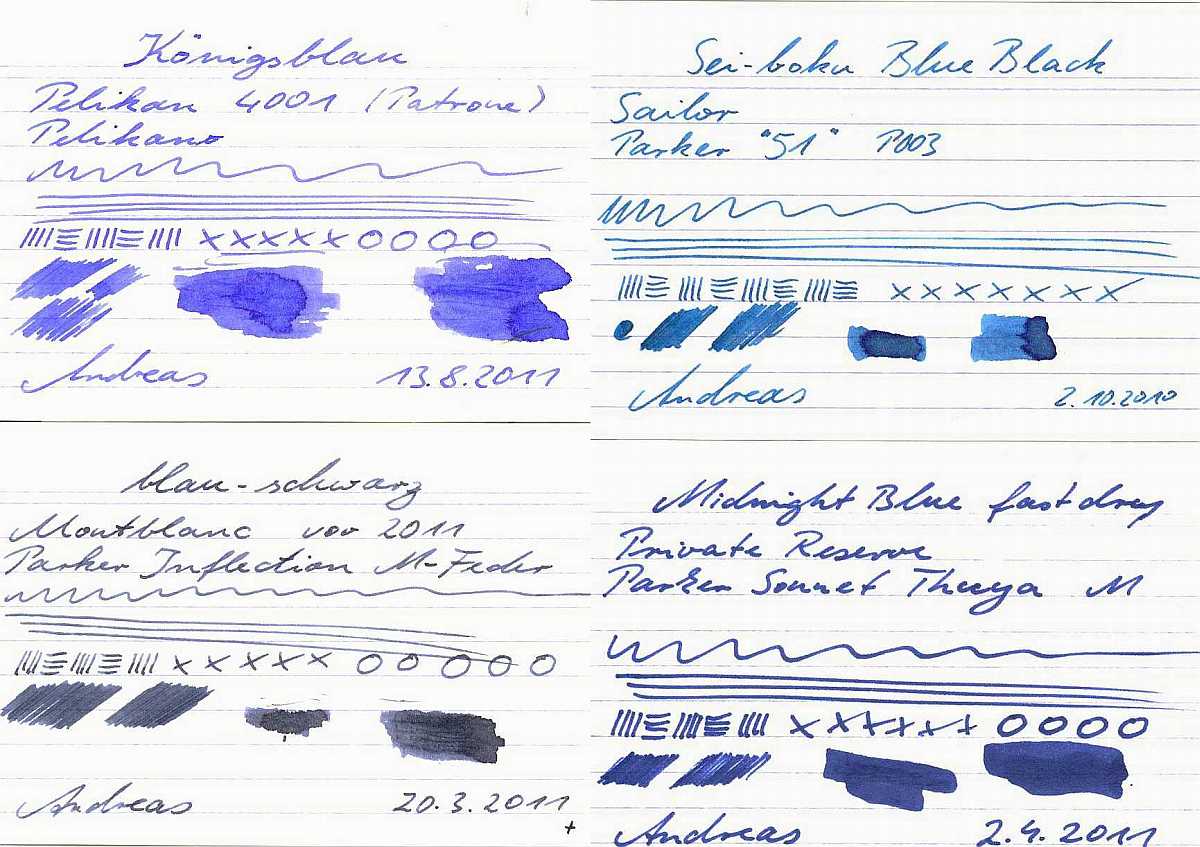 Königsblau
Pelikan 4001 (Patrone)
Pelikano
Andreas 13.8.2011
Sei-boku Blue Black
Sailor
Parker "51" P003
Andreas 2.10.2010
blau-schwarz
Montblanc vor 2011
Parker Inflection M-Feder
Andreas 20.3.2011
Midnight Blue fast dry
Private Reserve
Parker Sonnet Thuya M
Andreas 2.4.2011